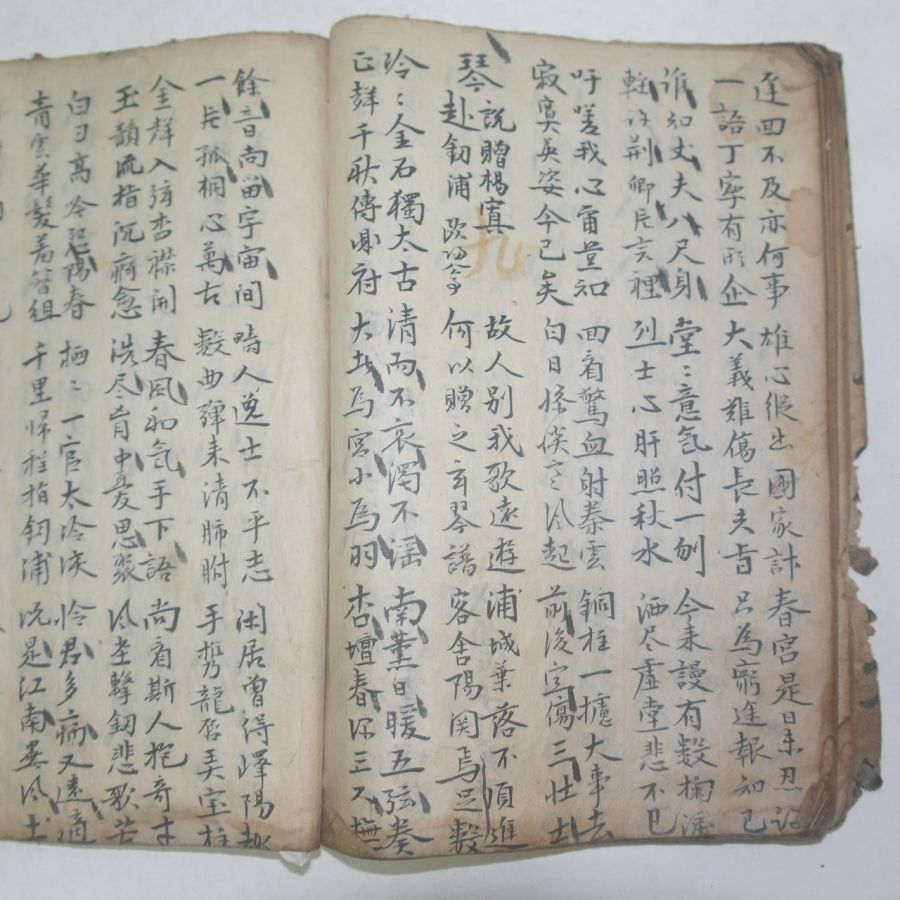 回不及亦何事 雄心縱出國家計 春宮是日未忍
一語丁寧有所企 大義難傷長夫旨 只為窮途報知己
誰知丈夫八尺身 堂〻意氣付一刎 今来謾有數掬淚
輕許荊卿片言裡 烈士心肝照秋水 洒尽虛堂悲不已
吁嗟我心甯堂知 回看驚血射秦雲 銅柱一攄大事去
寂寞英姿今已矣 白日 風起 前後空傷三壯士
琴說贈楊寘 故人別我歌遠遊 浦城葉落不須進
赴釖浦 何以贈之玄琴譜 客舍陽関焉足數
泠〻金石獨太古 清而不哀濁不淫 南薰日暖五弦奏
正聲千秋傳 府 大 為宮小為羽 杏壇春深三 撫
餘音尚留宇宙間 畸人逸士不平志 閑居曾得嶧陽
一片孤桐心萬古 數曲弾来清肺腑 手携龍唇美宝柱
金聲入弦 襟開 春風和氣手下語 尚看斯人抱奇才
玉韻流指沉痾愈 洗尽胷中憂思聚 風 擊釼悲歌苦
白日高吟 陽春 栖〻一官太冷淡 怜君多病又遠適
青雲華髮羞簪組 千里帰程指釖浦 況是江南異風土